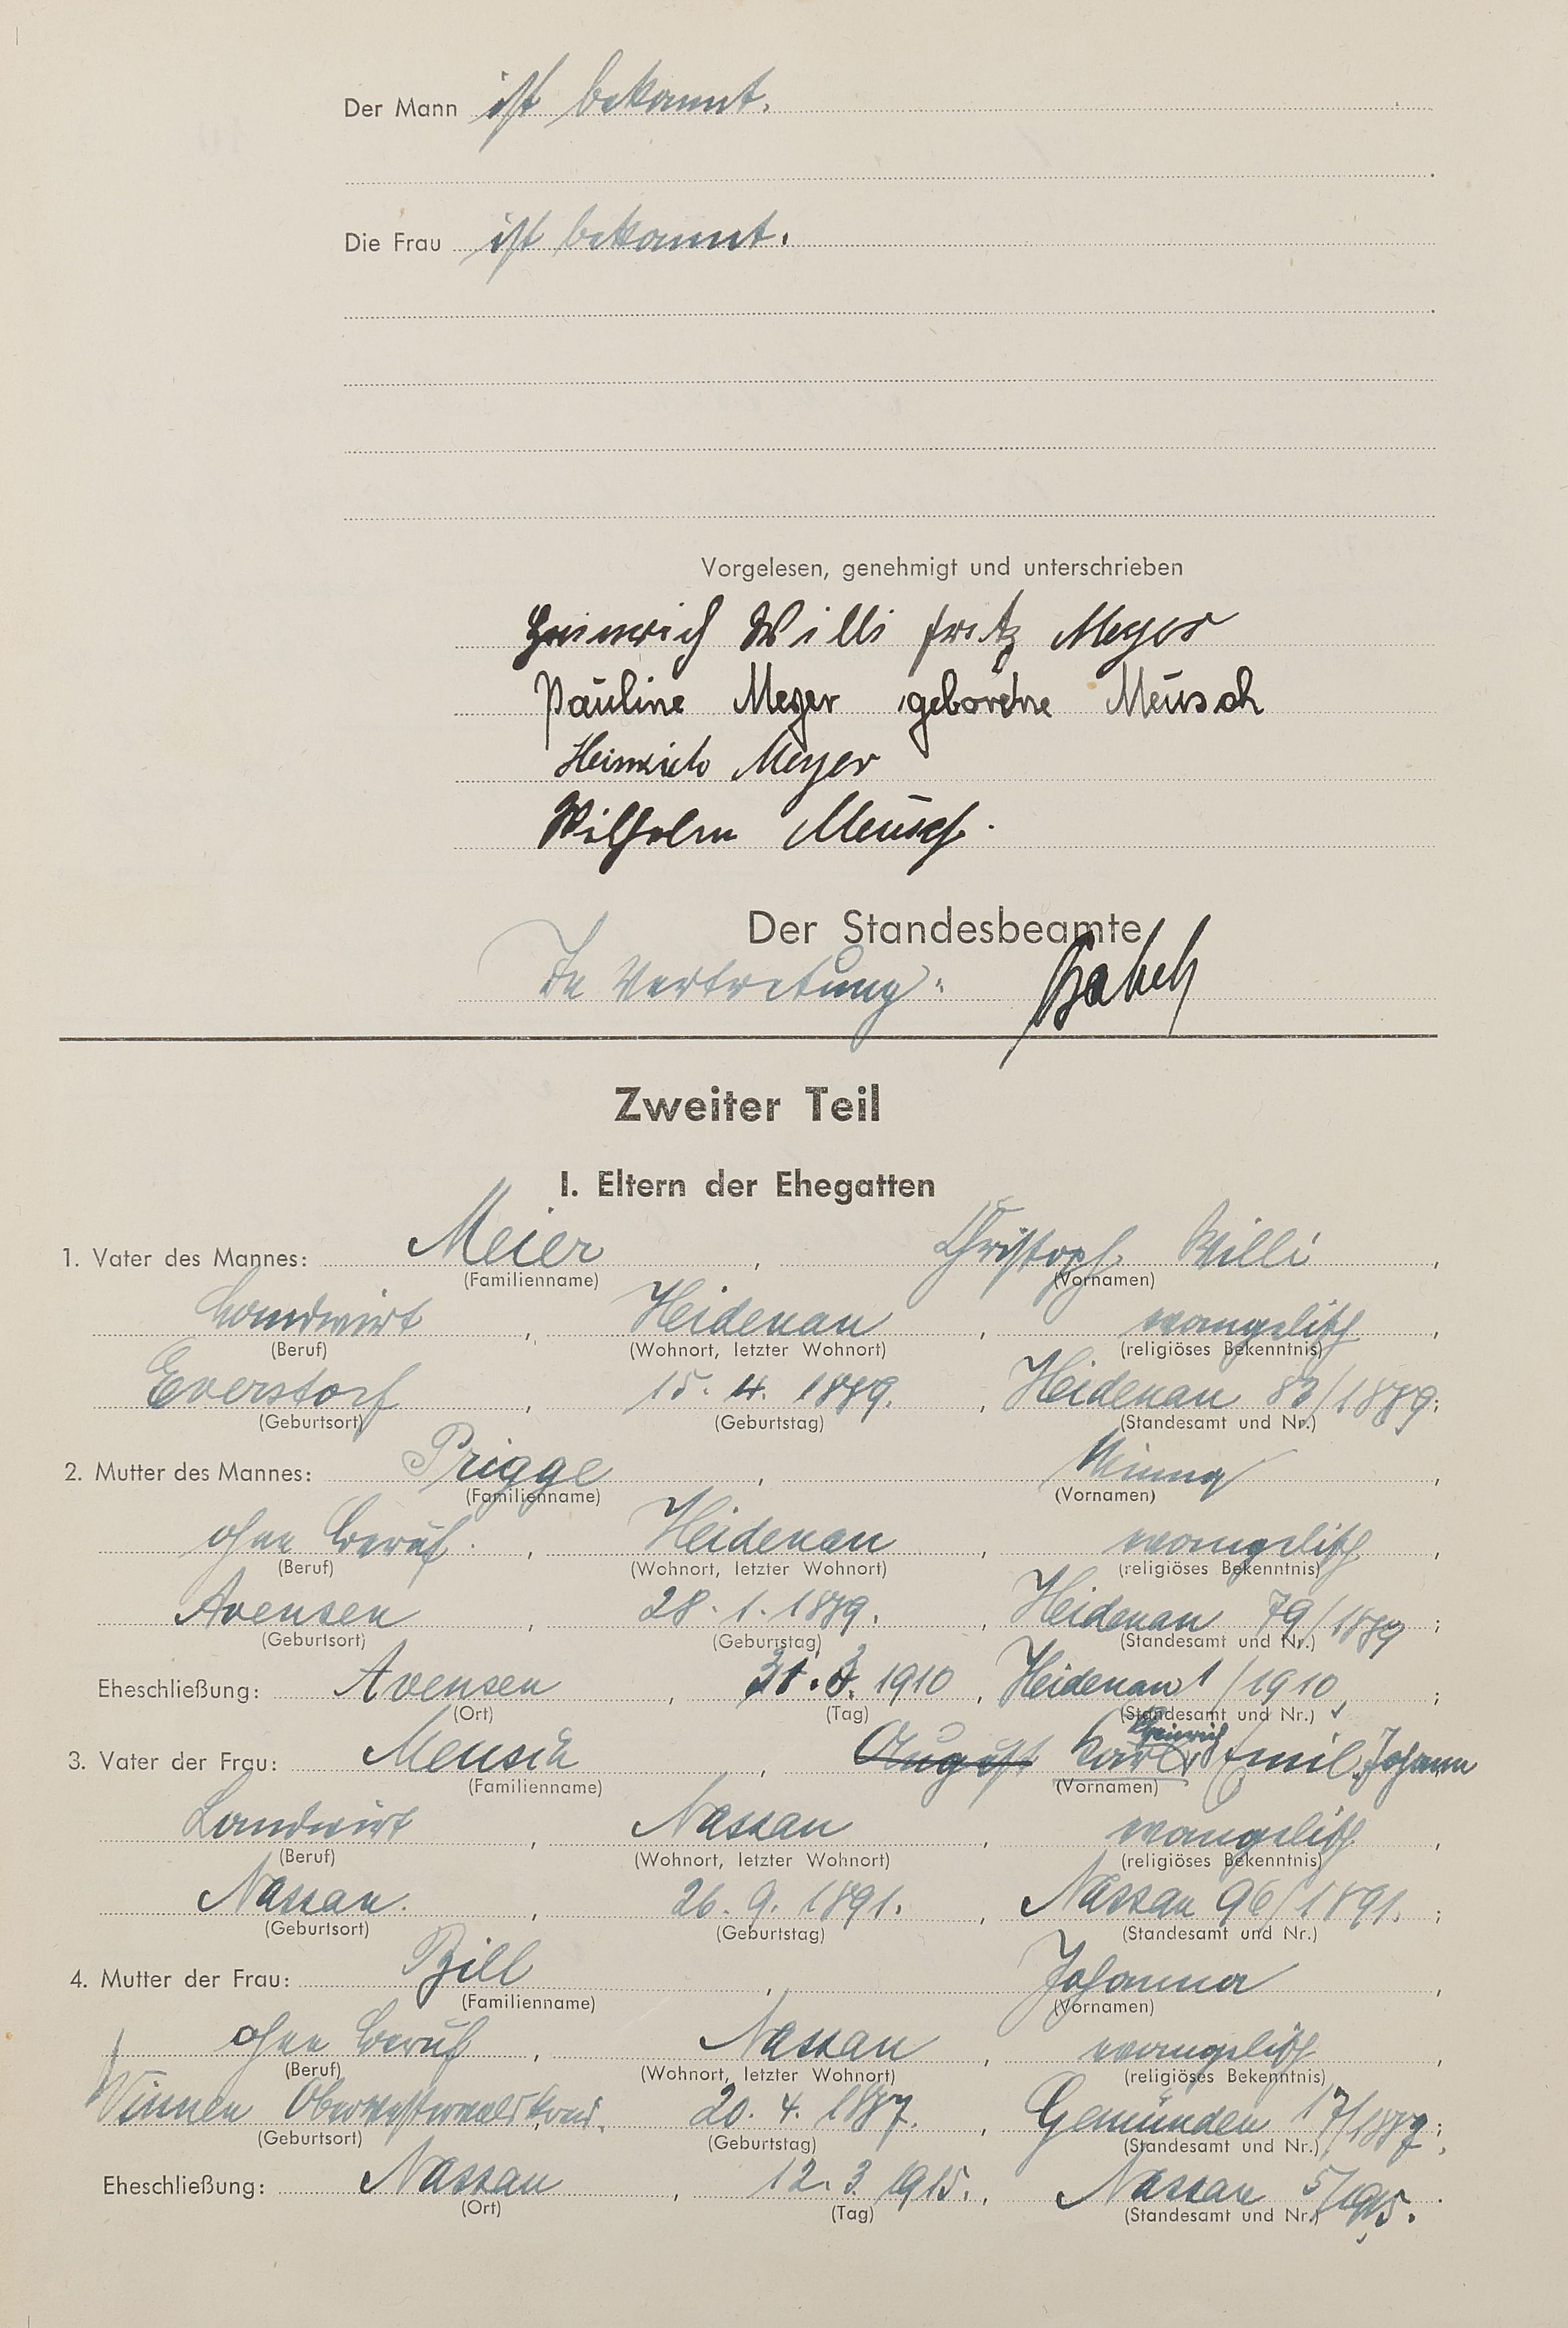 Der Mann ist bekannt.
Die Frau ist bekannt.
Vorgelesen, genehmigt und unterschrieben
Heinrich Willi Fritz Meyer
Pauline Meyer geborene Meusch
Heinrich Meyer
Wilhelm Meusch.
Der Standesbeamte
In Vertretung:
Zweiter Teil
I. Eltern der Ehegatten
1. Vater des Mannes: Meier, Christoph Willi,
(Familienname) (Vornamen)
Landwirt, Heidenau, evangelisch,
(Beruf) (Wohnort, letzter Wohnort) (religiöses Bekenntnis)
Everstorf, 15. 4. 1889., Heidenau 83/1889;
(Geburtsort) (Geburtstag) (Standesamt und Nr.)
2. Mutter des Mannes: Prigge, Minna,
(Familienname) (Vornamen)
ohne Beruf., Heidenau, evangelisch,
(Beruf) (Wohnort, letzter Wohnort) (religiöses Bekenntnis)
Avensen, 28. 1. 1889., Heidenau 79/1889;
(Geburtsort) (Geburtstag) (Standesamt und Nr.)
Eheschließung: Avensen, 31. 3. 1910, Heidenau 1/1910;
(Ort) (Tag) (Standesamt und Nr.)
Heinrich
3. Vater der Frau: Meusch, August Karl Emil, Johann
(Familienname) (Vornamen)
Landwirt, Nassau, evangelisch,
(Beruf) (Wohnort, letzter Wohnort) (religiöses Bekenntnis)
Nassau., 26. 9. 1891., Nassau 96/1891.;
(Geburtsort) (Geburtstag) (Standesamt und Nr.)
4. Mutter der Frau: Zill, Johanna,
(Familienname) (Vornamen)
ohne Beruf, Nassau, evangelisch,
(Beruf) (Wohnort, letzter Wohnort) (religiöses Bekenntnis)
Winnen Oberwesterwaldkreis., 20. 4. 1887., Gemünden 17/1887;
(Geburtsort) (Geburtstag) (Standesamt und Nr.)
Eheschließung: Nassau, 12. 3. 1915., Nassau 5/1915.
(Ort) (Tag) (Standesamt und Nr.)